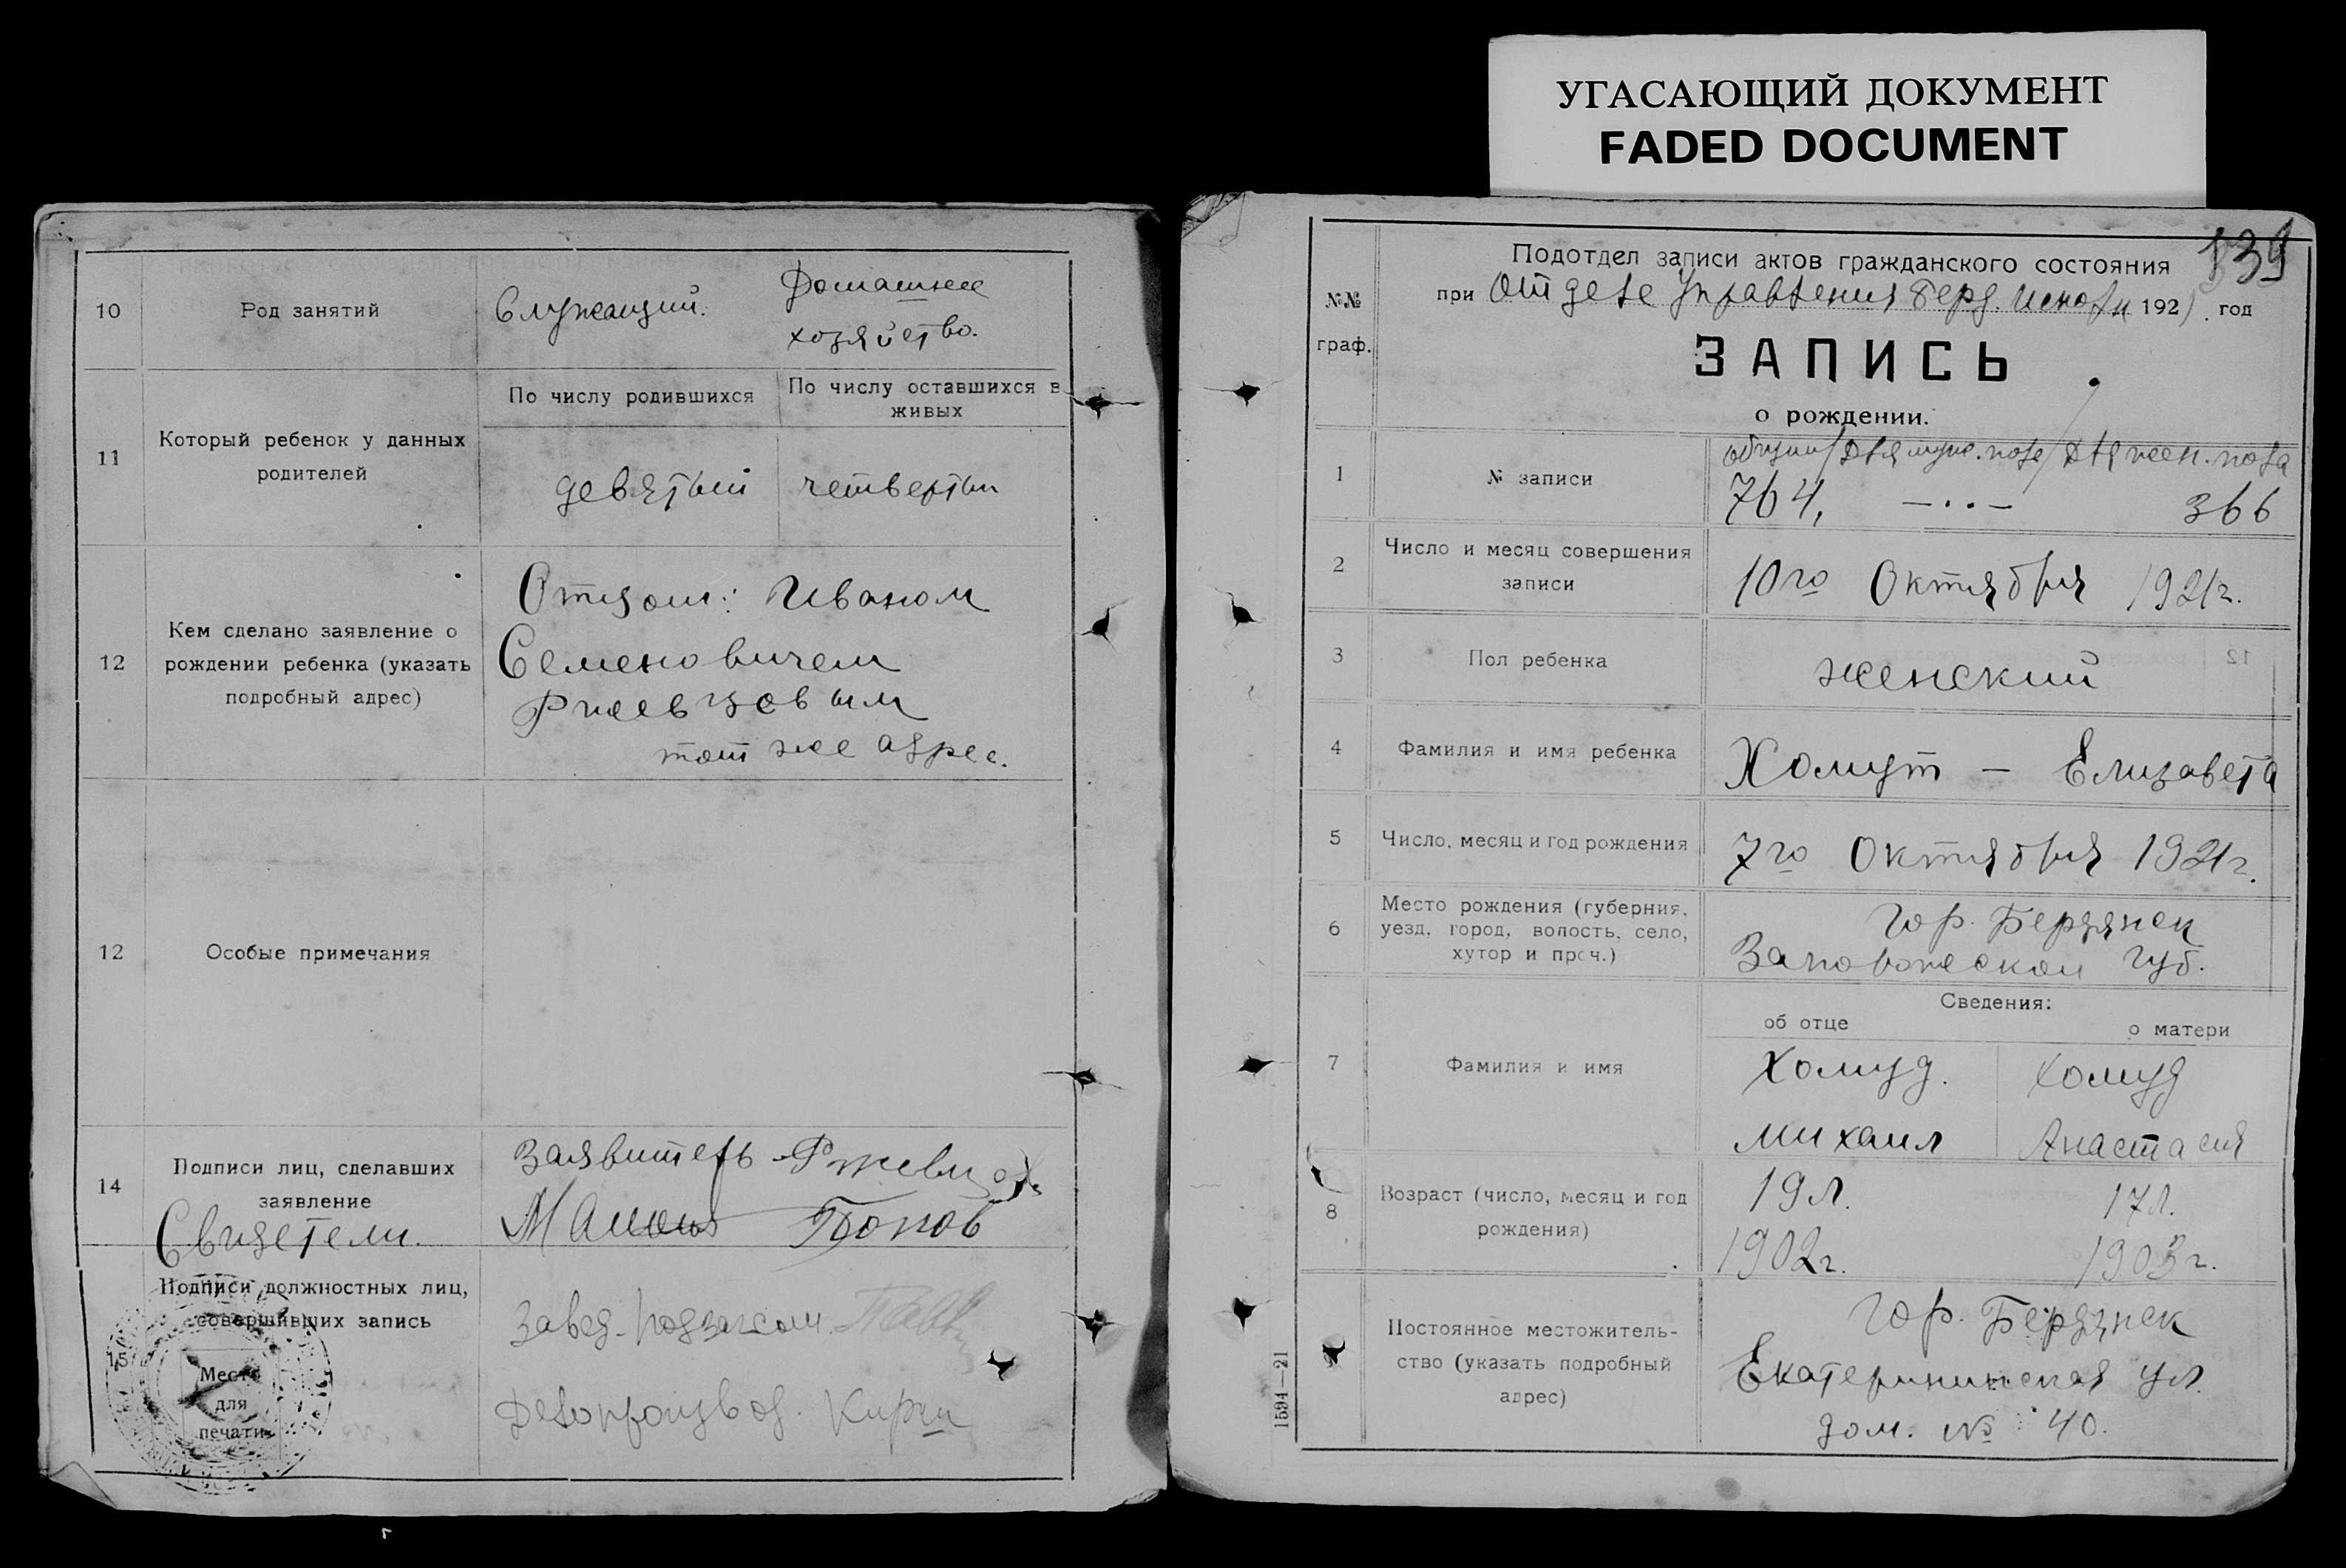 УГАСАЮЩИЙ ДОКУМЕНТ
FADED DOCUMENT
10
Род занятий
Служащий.
Домашнее
хозяйство.
11
Который ребенок у данных
родителей
По числу родившихся
По числу оставшихся в
живых
девятый
четвертый
12
Кем сделано заявление о
рождении ребенка (указать
подробный адрес)
Отцом: Иваном
Семеновичем
Ржевцовым
тот же адрес.
12
Особые примечания
14
Подписи лиц, сделавших
заявление
Свидетели.
Заявитель Ржевцов
Попов
15
Подписи должностных лиц,
совершивших запись
Место
для
печати
Завед. подзагсом
Делопроизвод.
139
№№
граф.
Подотдел записи актов гражданского состояния
при Отделе Управления Берд. Исполк 1921 год
ЗАПИСЬ
о рождении.
1
№ записи
общий/для муж. пола/для жен. пола
764, — . . — 366
2
Число и месяц совершения
записи
10го Октября 1921г.
3
Пол ребенка
женский
12
4
Фамилия и имя ребенка
Хомут — Елизавета
5
Число, месяц и год рождения
7го Октября 1921г.
6
Место рождения (губерния,
уезд, город, волость, село,
хутор и проч.)
Гор. Бердянск
Запорожской губ.
Сведения:
об отце
о матери
7
Фамилия и имя
Хомуд.
Михаил
Хомуд
Анастасия
8
Возраст (число, месяц и год
рождения)
19л.
1902г.
17л.
1903г.
Постоянное местожитель-
ство (указать подробный
адрес)
Гор. Бердянск
Екатерининская ул.
дом. № 40.
1594—21